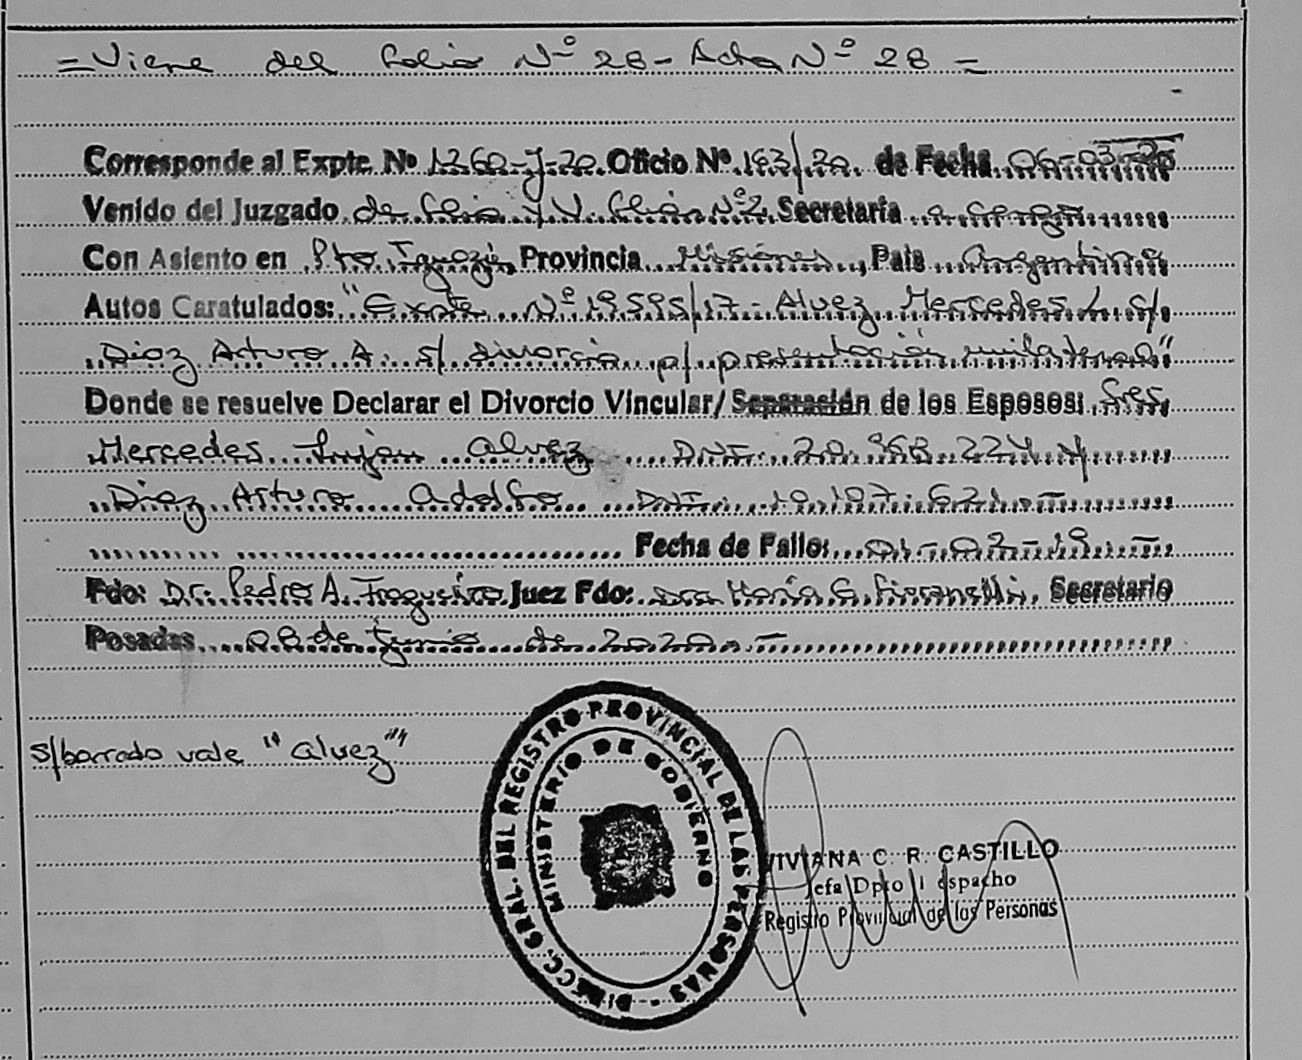 = Viene del folio Nº 28 - Acta Nº 28 =
Corresponde al Expte. Nº 1260-J-20. Oficio Nº 183/20. de Fecha 06-03-20
Venido del Juzgado de flia y V. fliar Nº2. Secretaría
Con Asiento en Pto Iguazú Provincia Misiones, País Argentina
Autos Caratulados: "Expte Nº 19595/17 - Alvez Mercedes L. c/
Diez Arturo A. s/ divorcio p/ presentación unilateral"
Donde se resuelve Declarar el Divorcio Vincular/ Separación de los Esposos: Sres.
Mercedes Lujan Alvez DNI. 20.968.224 y
Diez Arturo Adolfo DNI. 18.187.621
Fecha de Fallo: 01-02-19
Fdo: Dr. Pedro A. Juez Fdo: Dra María G. Secretario
Posadas 08 de Junio de 2020.-
s/borrado vale "Alvez"
DIRECC. GRAL. DEL REGISTRO PROVINCIAL DE LAS PERSONAS
MINISTERIO DE GOBIERNO
VIVIANA C. R. CASTILLO
Jefa Dpto Despacho
Registro Provincial de las Personas